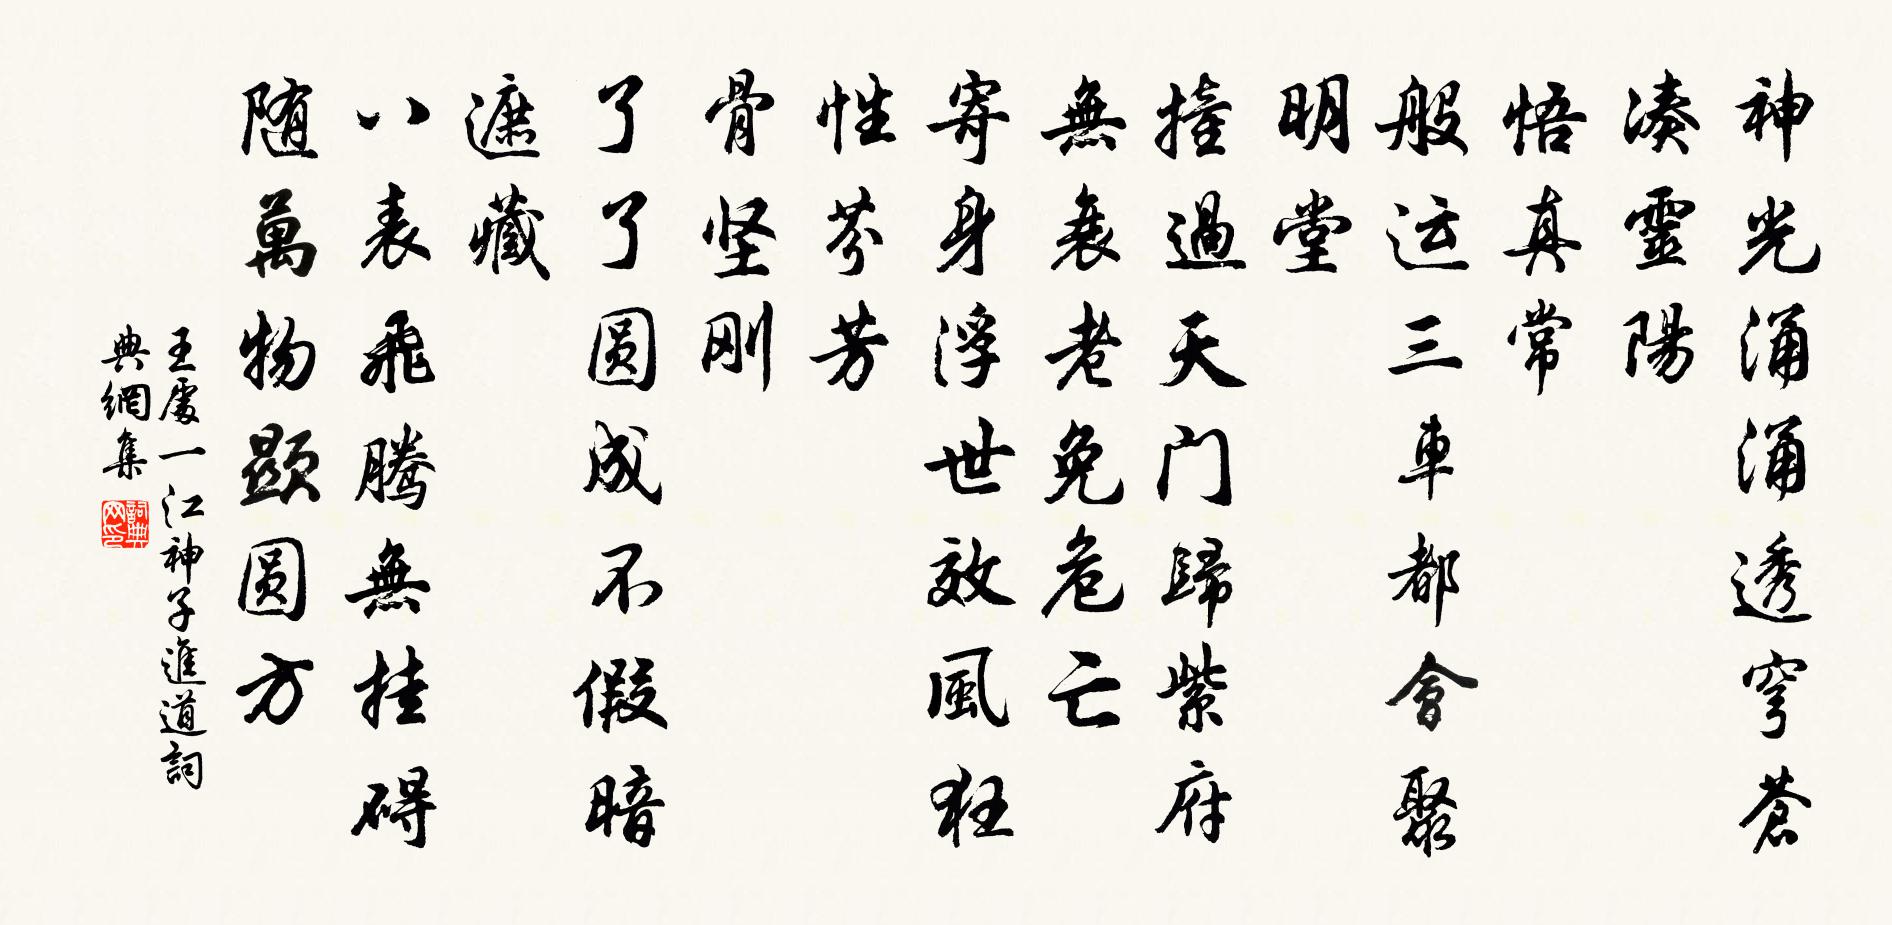 神光涌涌透穹苍
凑靈陽
悟真常
般运三車都會聚
明堂
撞過天门歸紫府
無衰老免危亡
寄身浮世效風狂
性芬芳
骨坚刚
了了圆成不假暗
遮藏
八表飛腾無挂碍
随萬物顕圆方
王處一江神子進道詞
典網集
詞典网印